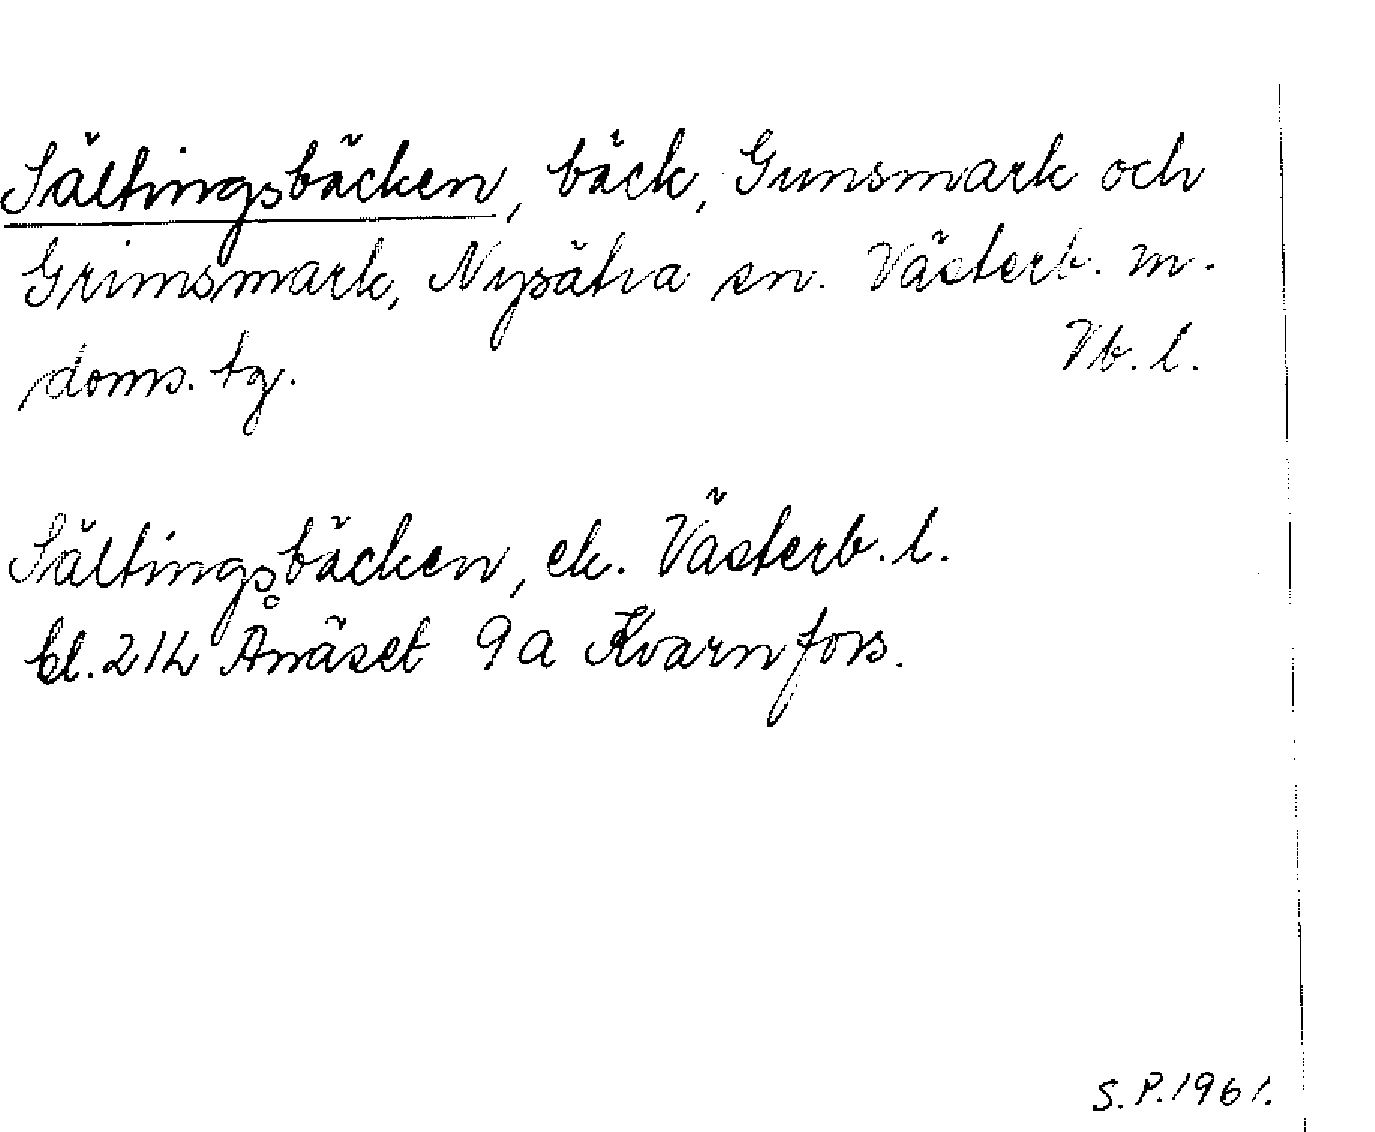 Sältingsbäcken, bäck, Gunsmark och
Grimsmark, Nysätra sn. Västerb. m.
doms. tg. Vb. l.
Sältingsbäcken, ek. Västerb. l.
bl. 21L Ånäset 9a Kvarnfors.
S. P. 1961.